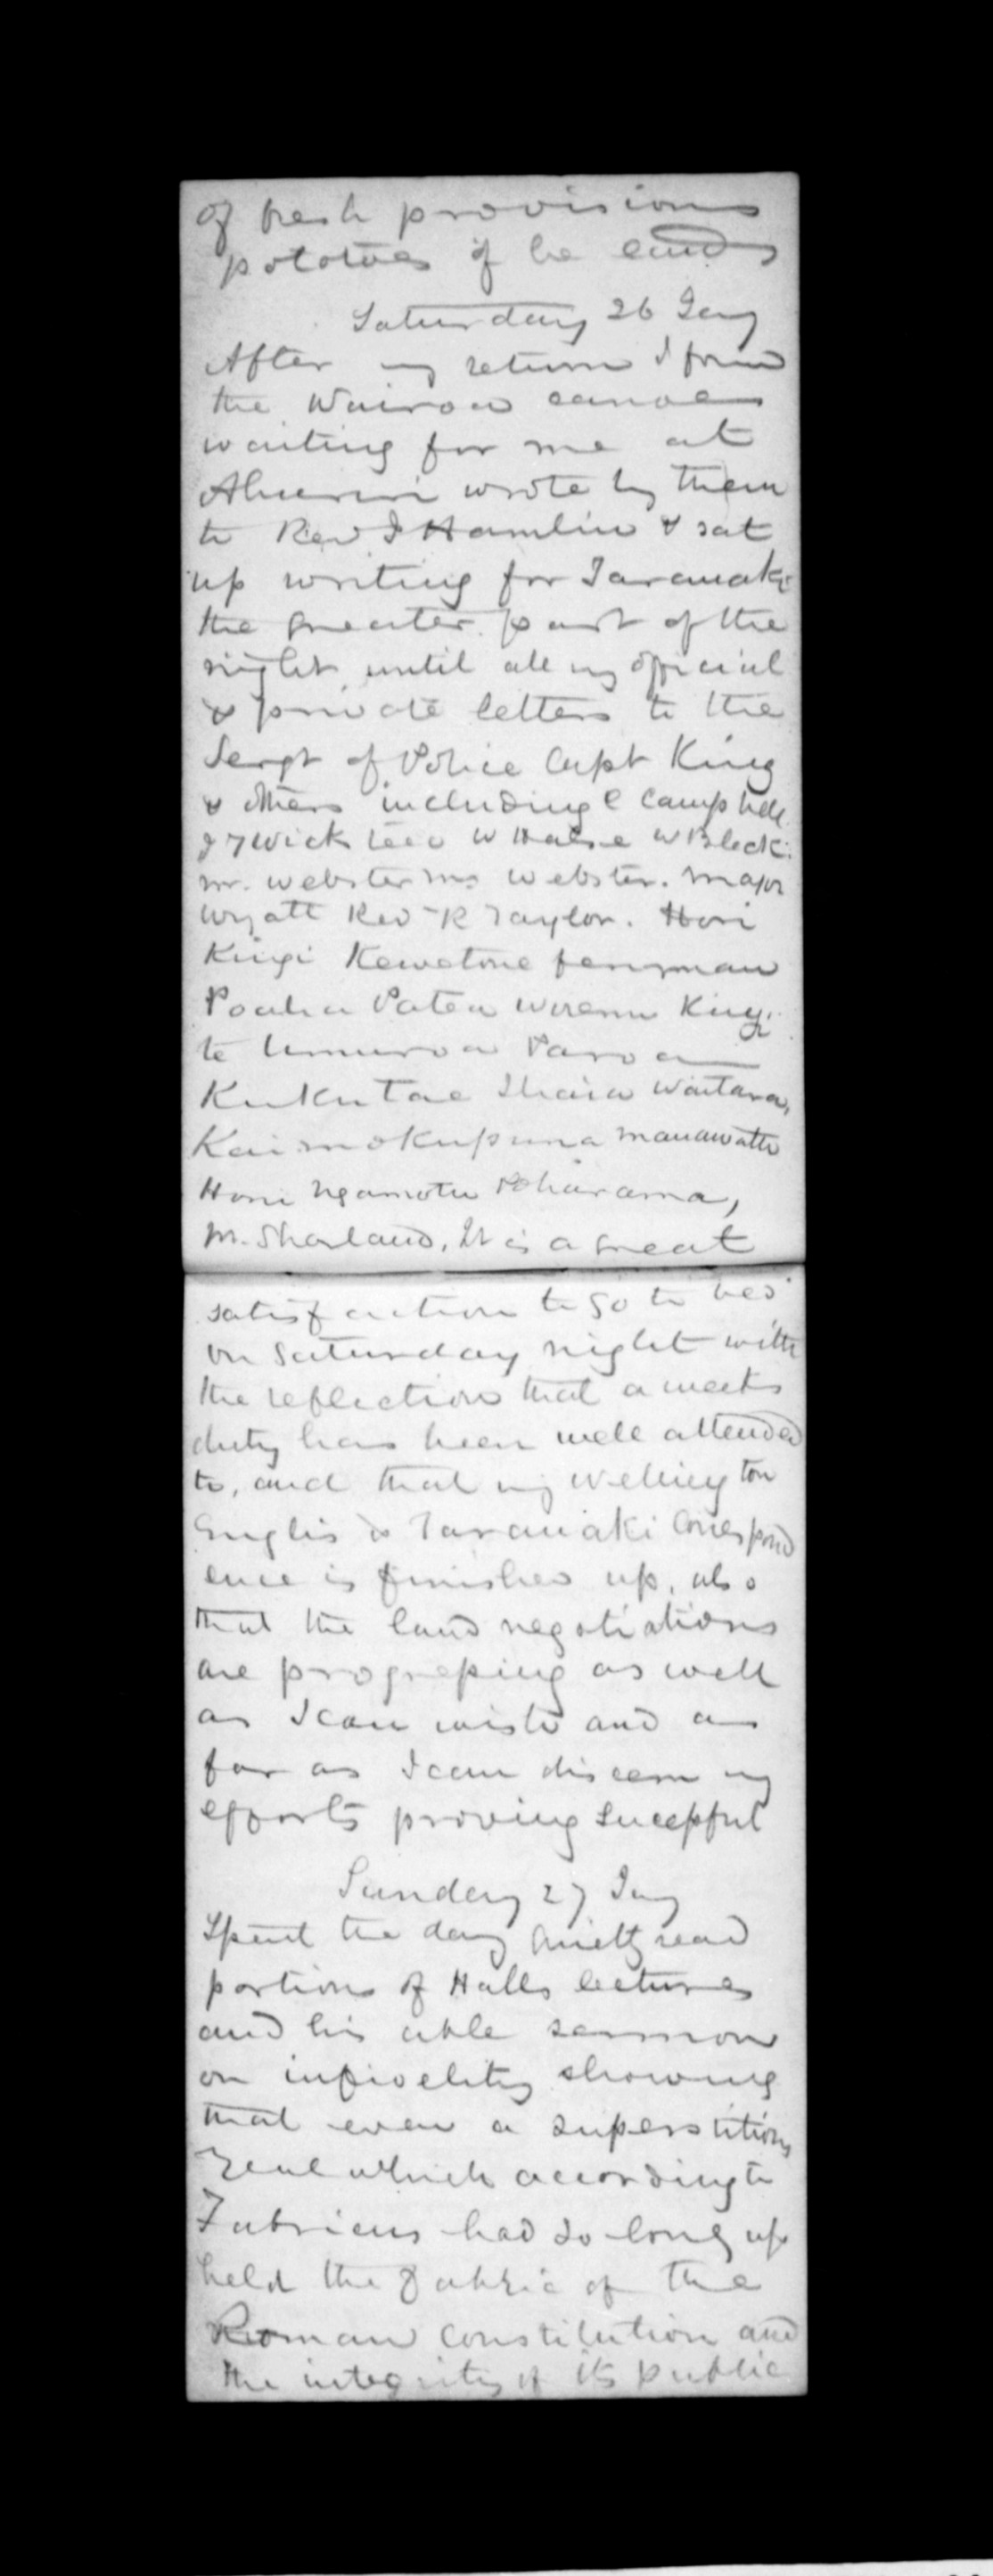 of fresh provisions
potatoes if he could
Saturday 26 Jany
After my return I found
the Wairoa canoes
waiting for me at
Ahuriri wrote by them
to Rev J Hamlin & sat
up writing for Taranaki
the greater part of the
night, until all my official
& private letters to the
Sergt of Police Capt King
& others including C Campbell
J T Wicksteed W Halse W Black
Mr. Webster Mrs Webster. Major
Wyatt Rev R Taylor. Hori
Kingi
Patea Wiremu Kingi
te
Kukutae Ihaia Waitara,
Kaimokupuna Manawatu
Honi Ngamotu Poharama,
M. Sharland. It is a great
satisfaction to go to bed
on Saturday night with
the reflection that a weeks
duty has been well attended
to, and that my Wellington
Englis & Taranaki Correspond
ence is finished up, also
that the land negotiations
are progressing as well
as I can wish and as
far as I can discern my
efforts proving sucessful
Sunday 27 Jany
Spent the day quietly read
portions of Halls lectures
and his able sermon
on infidelity showing
that even a superstitious
zeal which according to
Fabricus had so long up
held the Fabric of the
Roman Constitution and
the integrity of its public